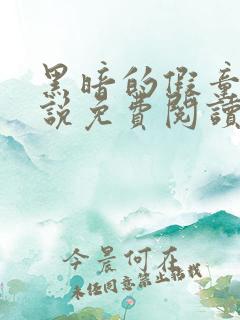 黑暗的假童
說免費閱讀
今晨何在
未经同意禁止转载